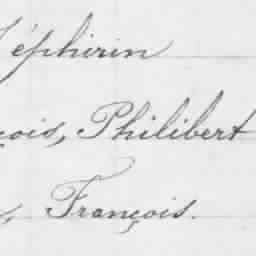 Zéphirin
çois, Philibert
François.